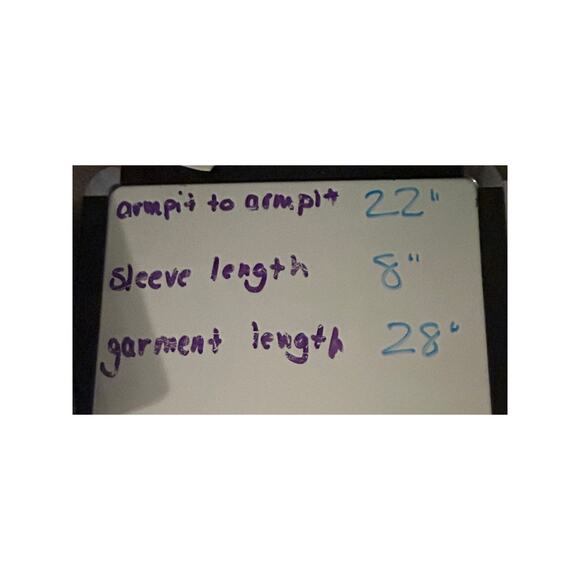 armpit to armpit 22"
sleeve length 8"
garment length 28"